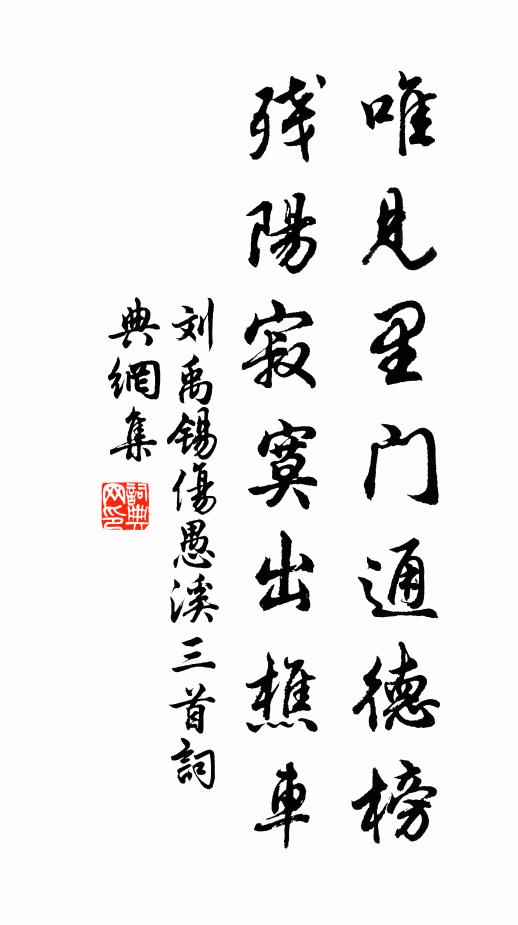 唯見里门通德榜
残陽寂寞出樵車
刘禹锡傷愚溪三首詞
典網集
詞典
网印